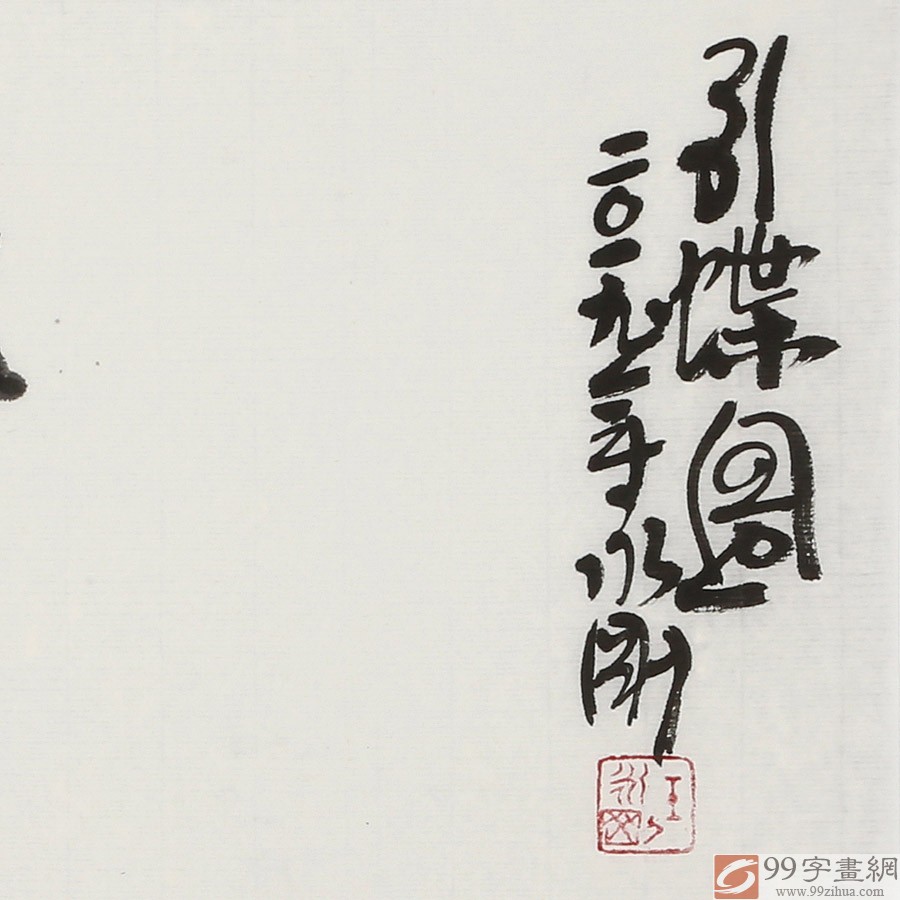 引蝶圖
二〇一九年永剛
99字畫網
www.99zihua.com